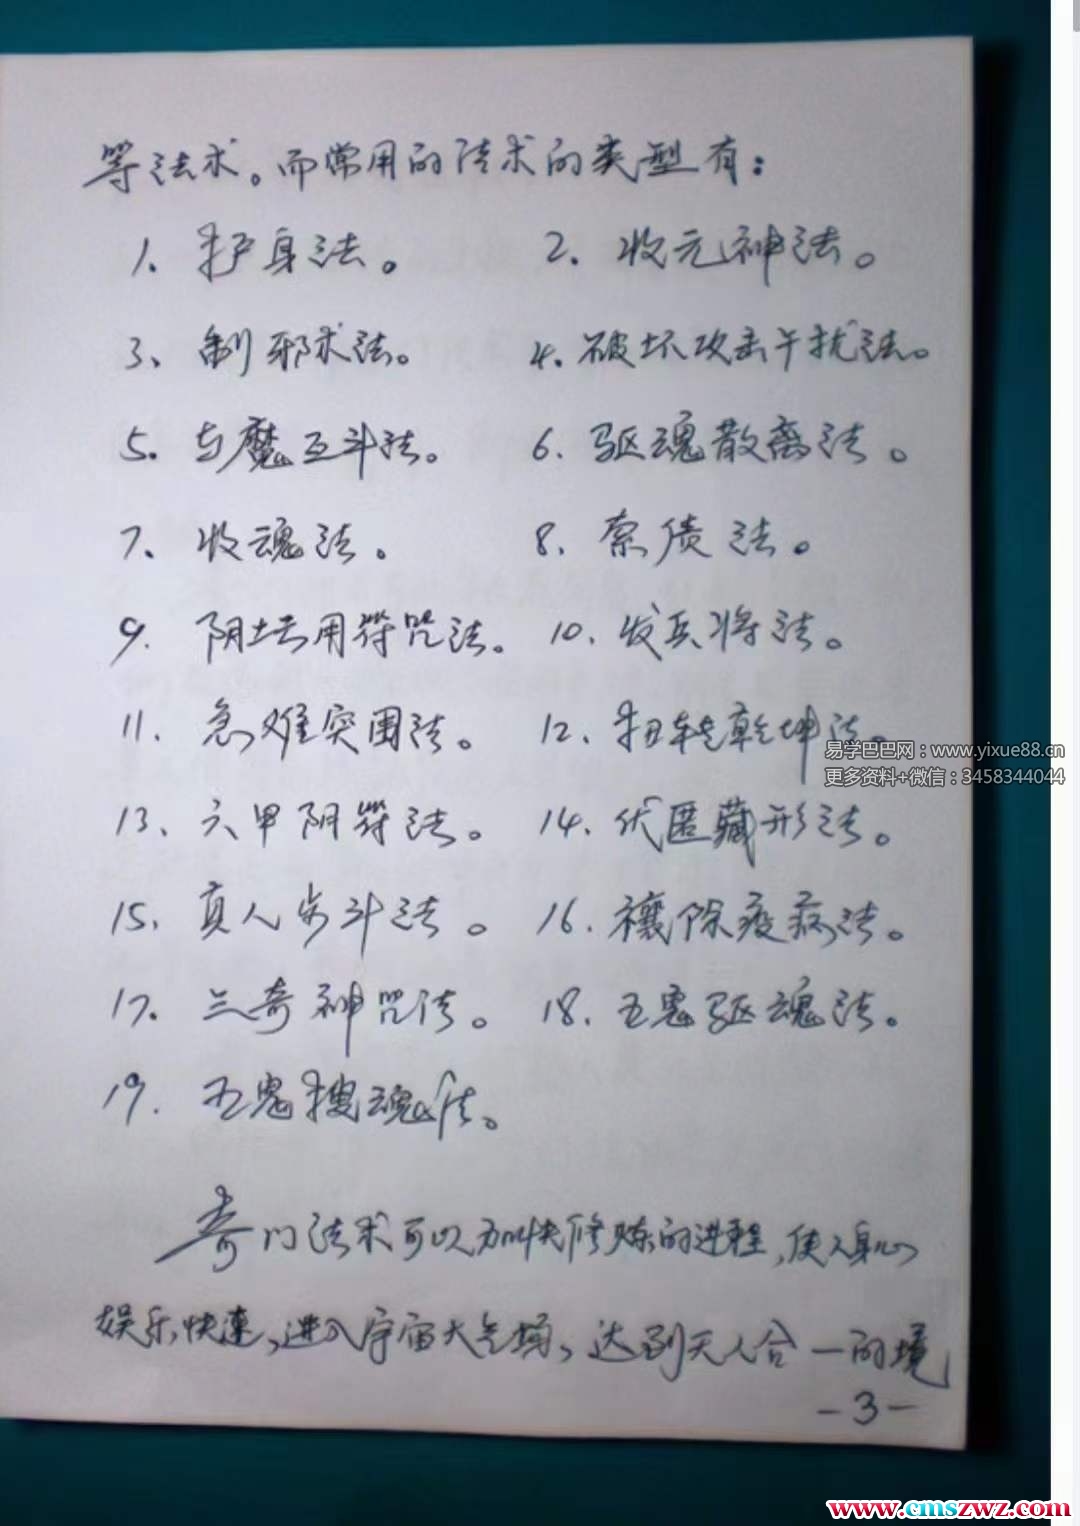 等法术。而常用的法术的类型有：
1. 护身法。 2. 收元神法。
3、制邪术法。 4. 破坏攻击干扰法。
5. 与魔互斗法。 6. 驱魂散离法。
7. 收魂法。 8. 索债法。
9. 阴坛用符咒法。 10. 发兵将法。
11. 急难突围法。 12. 扭转乾坤法。
易学巴巴网：www.yixue88.cn
更多资料+微信：3458344044
13、六甲阴符法。 14. 伏匿藏形法。
15. 真人步斗法。 16. 禳除疫病法。
17. 三奇神咒法。 18. 五鬼驱魂法。
19. 五鬼搜魂法。
奇门法术可以加快修炼的进程，使人身心
娱乐，快速，进入宇宙大气场，达到天人合一的境
-3-
www.cmszwz.com